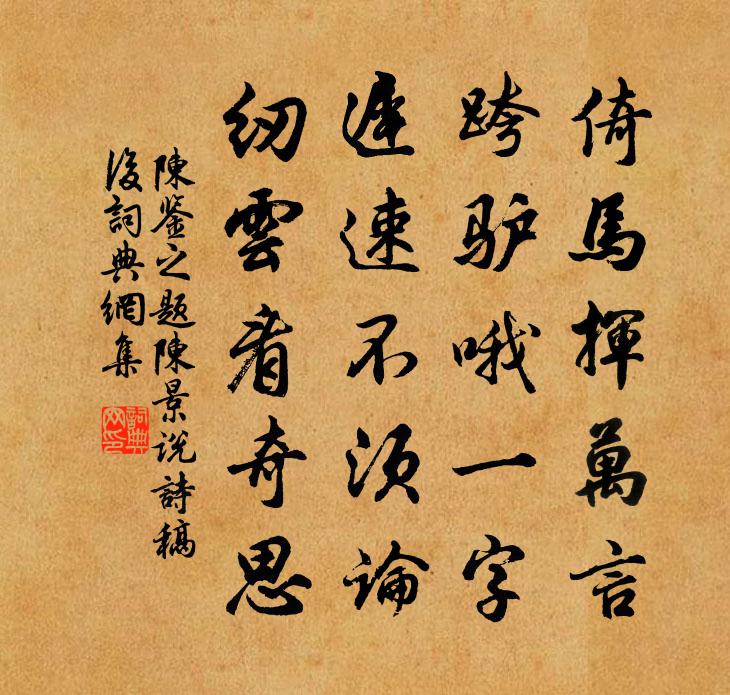 倚馬揮萬言
跨驴哦一字
遲速不須論
纫雲看奇思
陳鉴之题陳景说詩稿
後詞典網集
詞典
网印